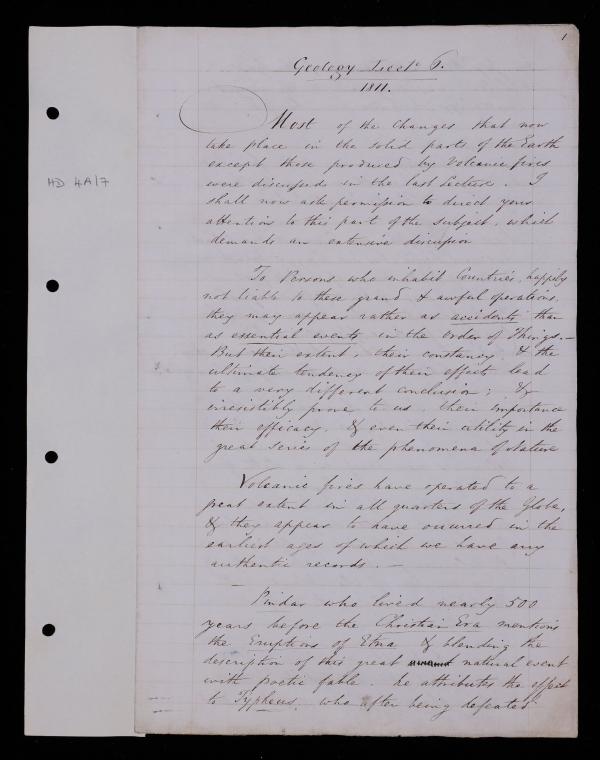 1
Geology Lecte 6.
1811.
Most of the Changes that now
take place in the solid parts of the Earth
except those produced by Volcanic fires
were discussed in the last Lecture. I
shall now ask permission to direct your
attention to this part of the subject, which
demands an extensive discussion
To Persons who inhabit Countries, happily
not liable to these grand & awful operations,
they may appear rather as accidents than
as essential events in the order of Things. —
But their extent, their constancy, & the
ultimate tendency of their effects lead
to a very different conclusion; &
irresistibly prove to us, their importance
their efficacy, & even their utility in the
great series of the phenomena of Nature
Volcanic fires have operated to a
great extent in all quarters of the Globe,
& they appear to have occurred in the
earliest ages of which we have any
authentic records. —
Pindar who lived nearly 500
years before the Christian Era mentions
the Eruptions of Etna & blending the
description of this great natural event
with poetic fable. he attributes the effect
to Typheus, who after being defeated
HD 4A/7